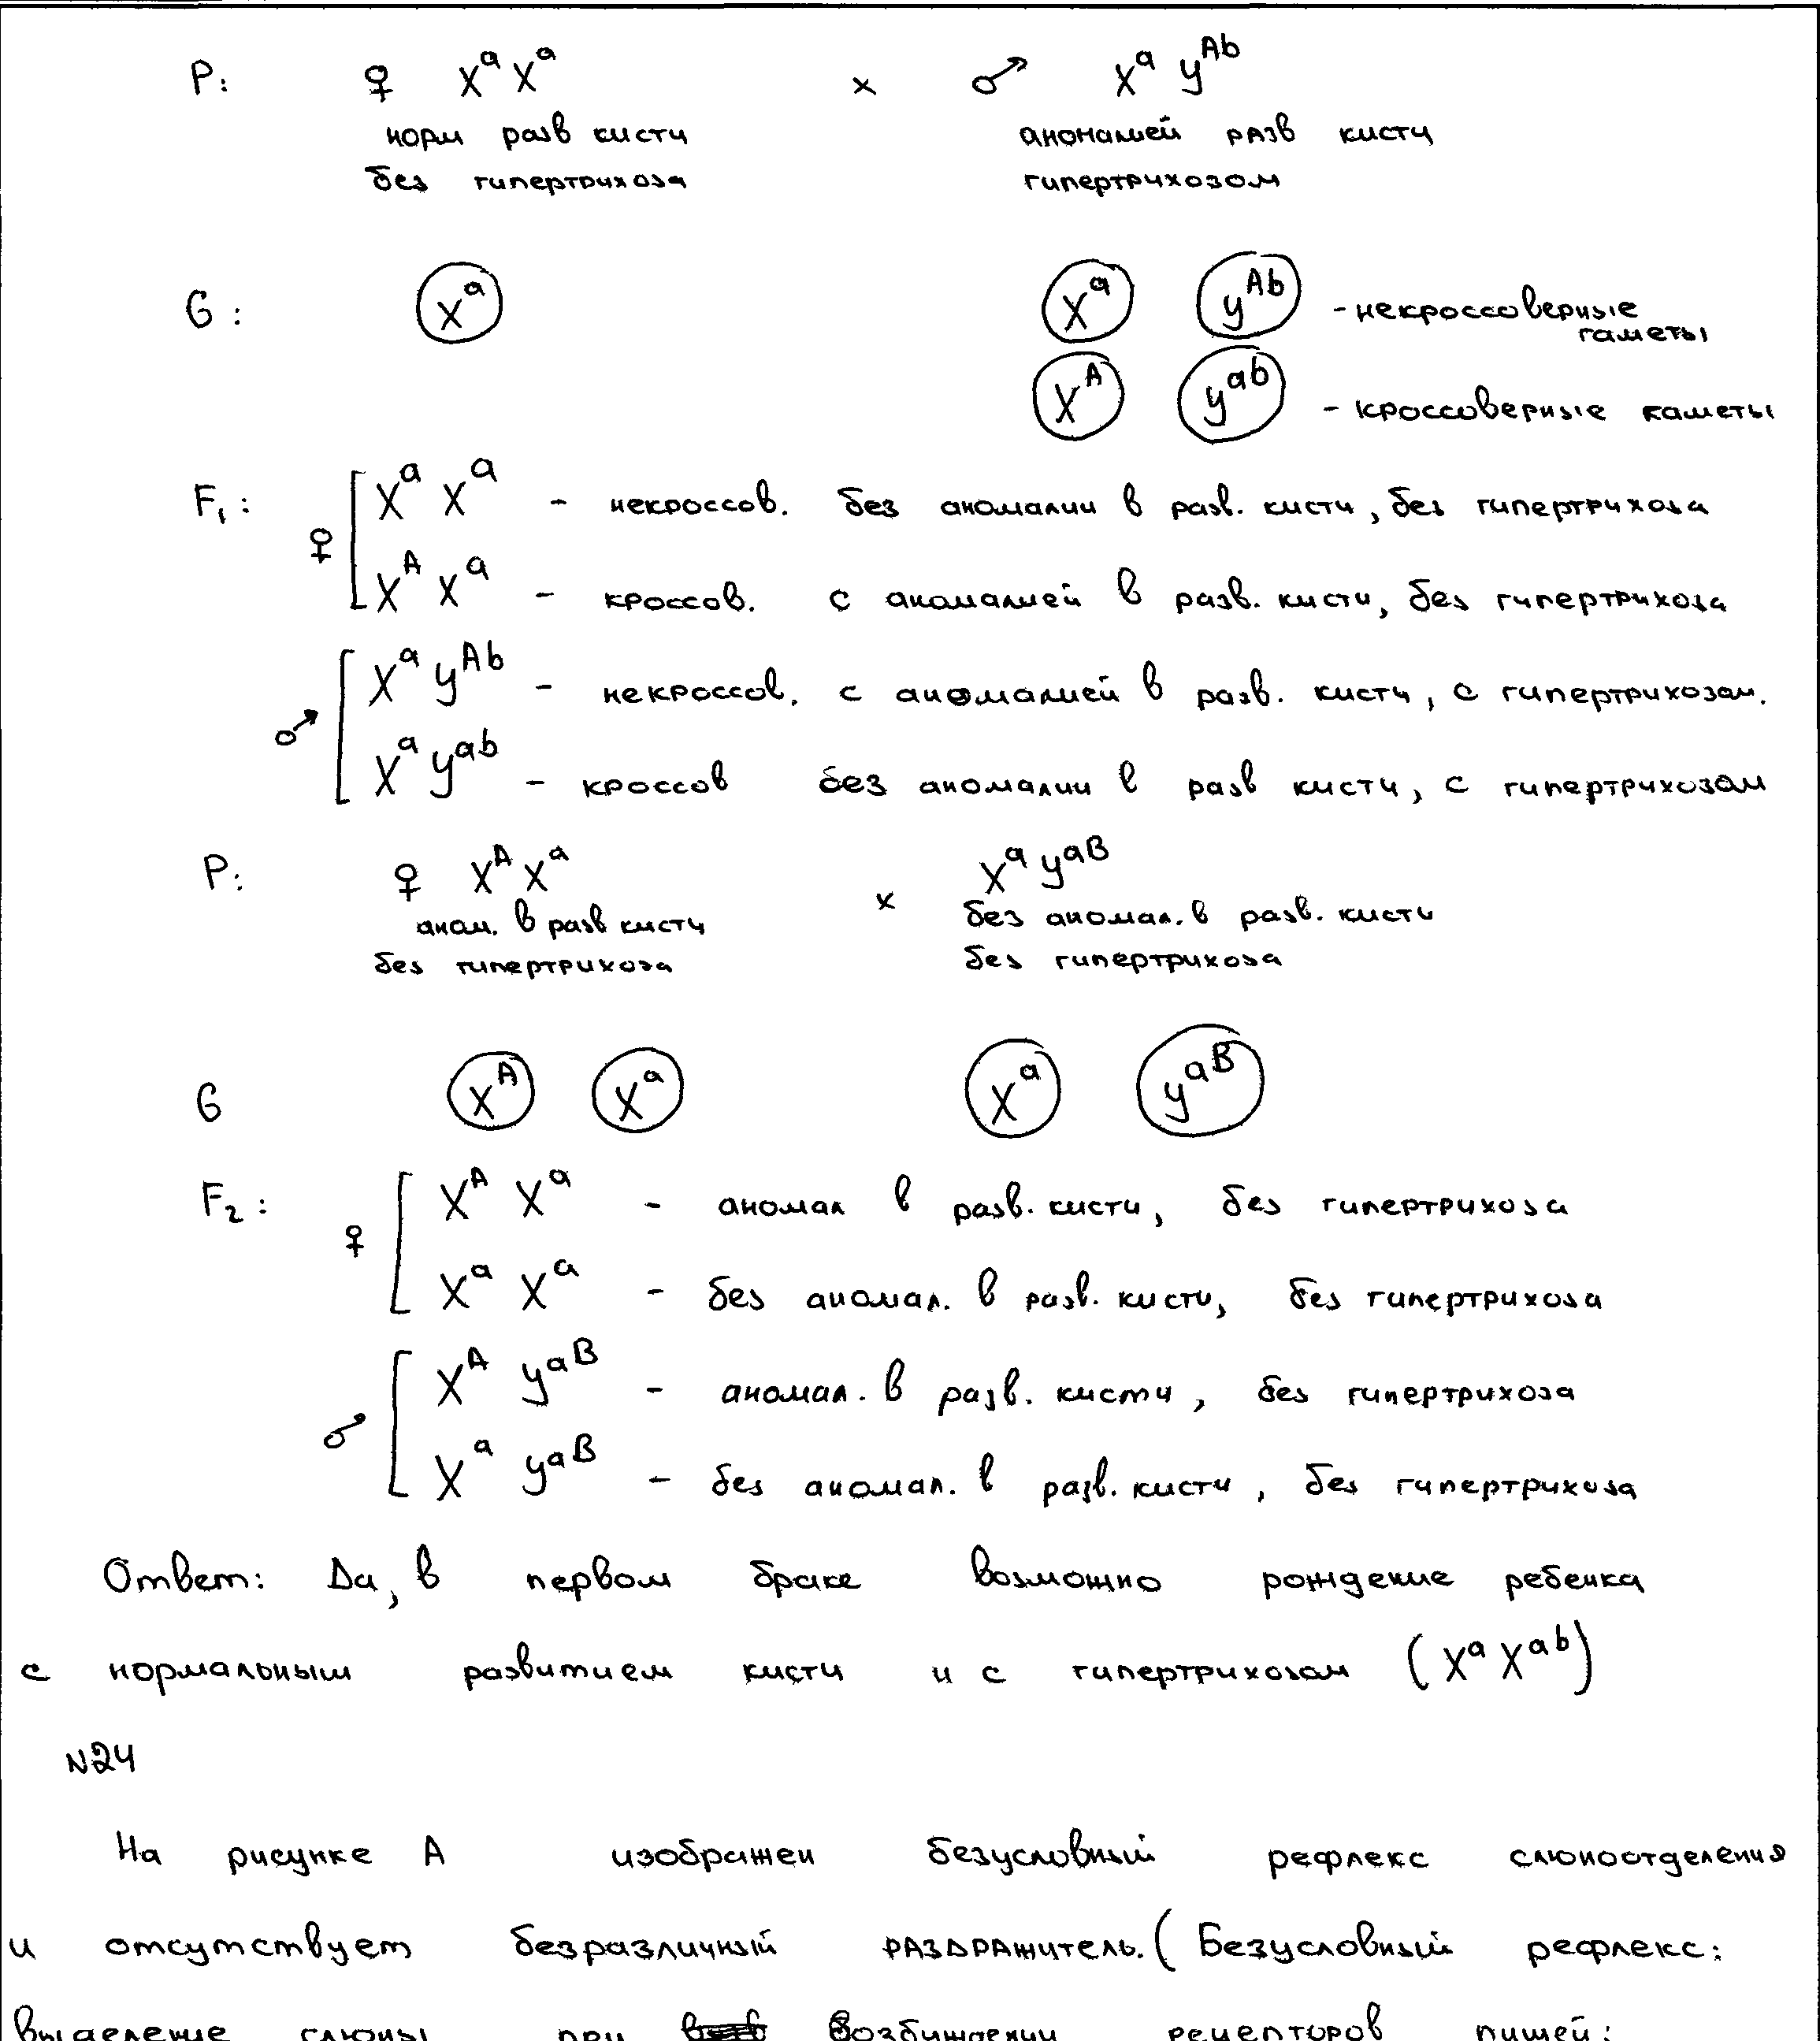 P: ♀ XᵃXᵃ × ♂ Xᵃ yᴬᵇ
норм разв кисти анономалией разв кисти
без гипертрихоза гипертрихозом
G: Xᵃ Xᵃ yᴬᵇ - некроссоверные гаметы
Xᴬ yᵃᵇ - кроссоверные гаметы
F₁: ♀ Xᵃ Xᵃ - некроссов. без аномалии в разв. кисти, без гипертрихоза
Xᴬ Xᵃ - кроссов. с аномалией в разв. кисти, без гипертрихоза
♂ Xᵃ yᴬᵇ - некроссов. с аномалией в разв. кисти, с гипертрихозом.
Xᵃ yᵃᵇ - кроссов без аномалии в разв кисти, с гипертрихозом
P: ♀ Xᴬ Xᵃ × Xᵃ yᵃᴮ
аном. в разв кисти без аномал. в разв. кисти
без гипертрихоза без гипертрихоза
G Xᴬ Xᵃ Xᵃ yᵃᴮ
F₂: ♀ Xᴬ Xᵃ - аномал в разв. кисти, без гипертрихоза
Xᵃ Xᵃ - без аномал. в разв. кисти, без гипертрихоза
♂ Xᴬ yᵃᴮ - аномал. в разв. кисти, без гипертрихоза
Xᵃ yᵃᴮ - без аномал. в разв. кисти, без гипертрихоза
Ответ: Да, в первом браке возможно рождение ребенка
с нормальным развитием кисти и с гипертрихозом (Xᵃ Xᵃᵇ)
N24
На рисунке А изображен безусловный рефлекс слюноотделения
и отсутствует безразличный раздражитель. (Безусловный рефлекс:
выделение слюны при возбуждении рецепторов пищей: